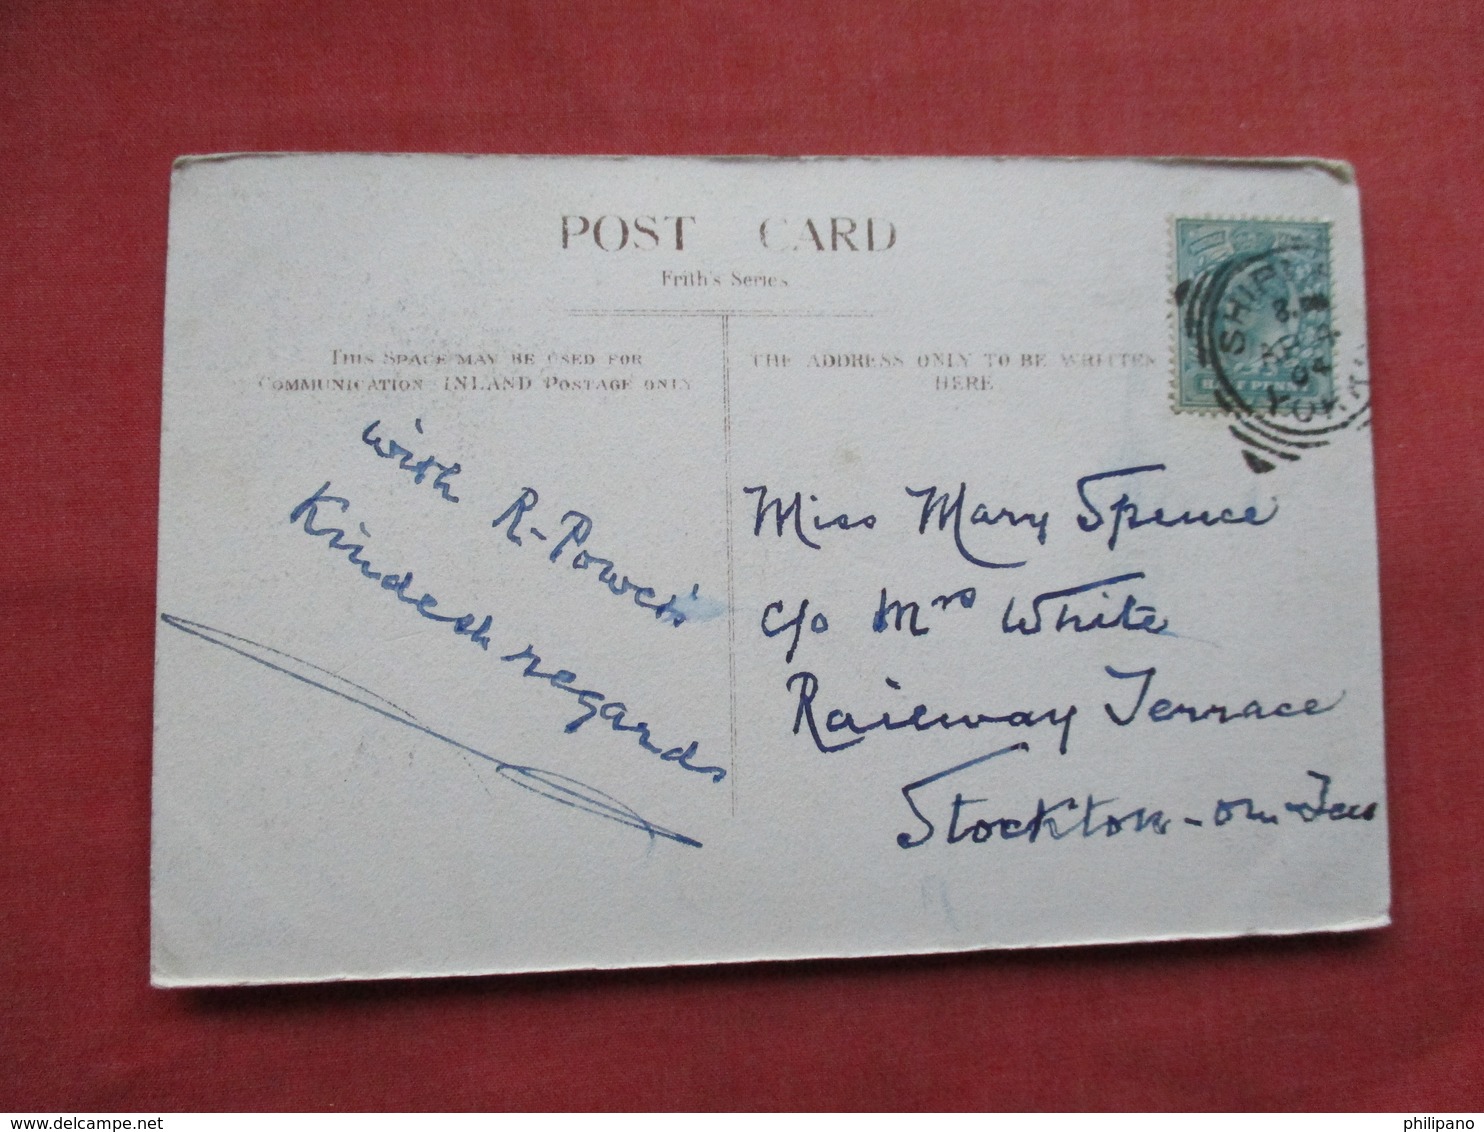 POST CARD
Frith's Series
THIS SPACE MAY BE USED FOR
COMMUNICATION INLAND POSTAGE ONLY
THE ADDRESS ONLY TO BE WRITTEN
HERE
with
R-Power's
Kindest regards
Miss Mary Spence
c/o Mrs White
Railway Terrace
Stockton-on-Tees
HALF PENNY
AP
04
philipano
www.delcampe.net